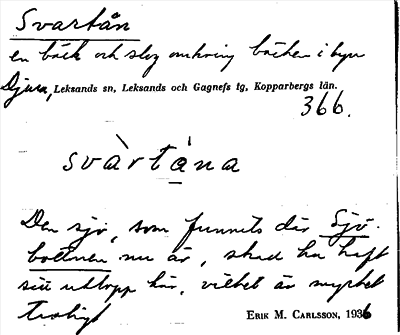 Svartån
en bäck och slog omkring bäcken i byn
Djura, Leksands sn, Leksands och Gagnefs tg, Kopparbergs län.
366.
svàrtána
Den sjö, som funnits där Sjö-
bottnen nu är, skad ha haft
sitt utlopp här, vilket är mycket
troligt
ERIK M. CARLSSON, 1936